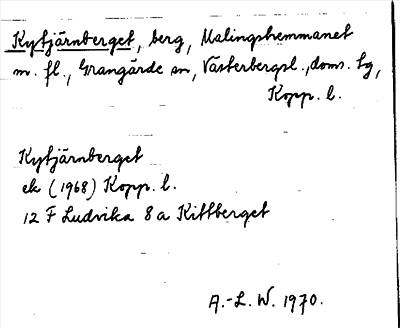 Kytjärnberget, berg, Malingshemmanet
m. fl., Grangärde sn, Västerbergsl., doms. tg,
Kopp. l.
Kytjärnberget
ek (1968) Kopp. l.
12 F Ludvika 8 a Kittberget
A.-L. W. 1970.